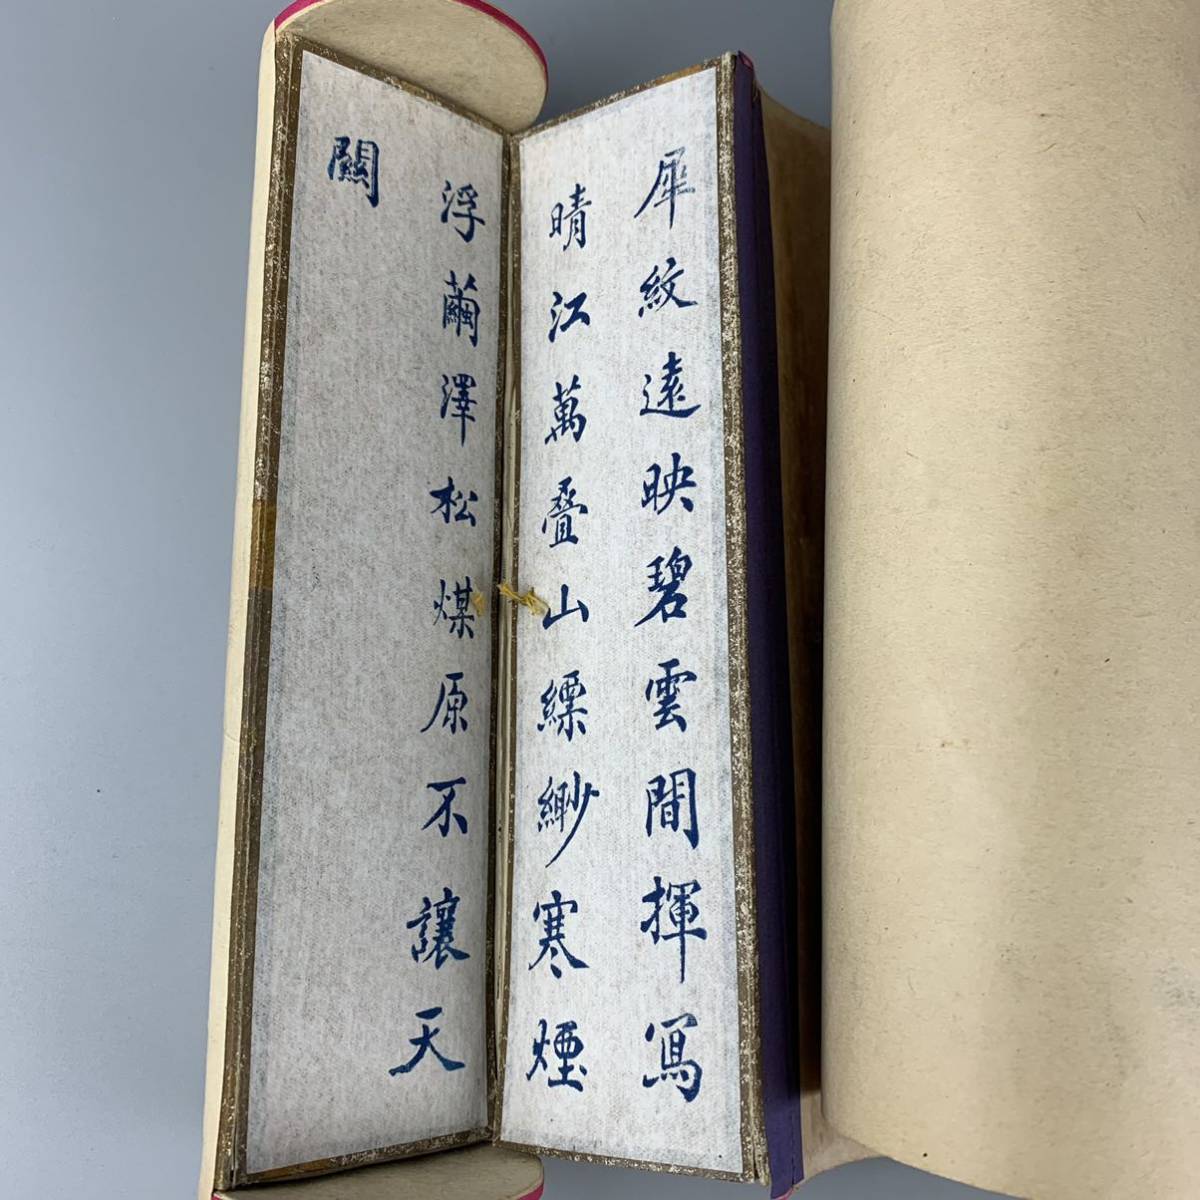 犀紋遠映碧雲間揮寫
晴江萬疊山縹緲寒煙
浮繭澤松煤原不讓天
闕